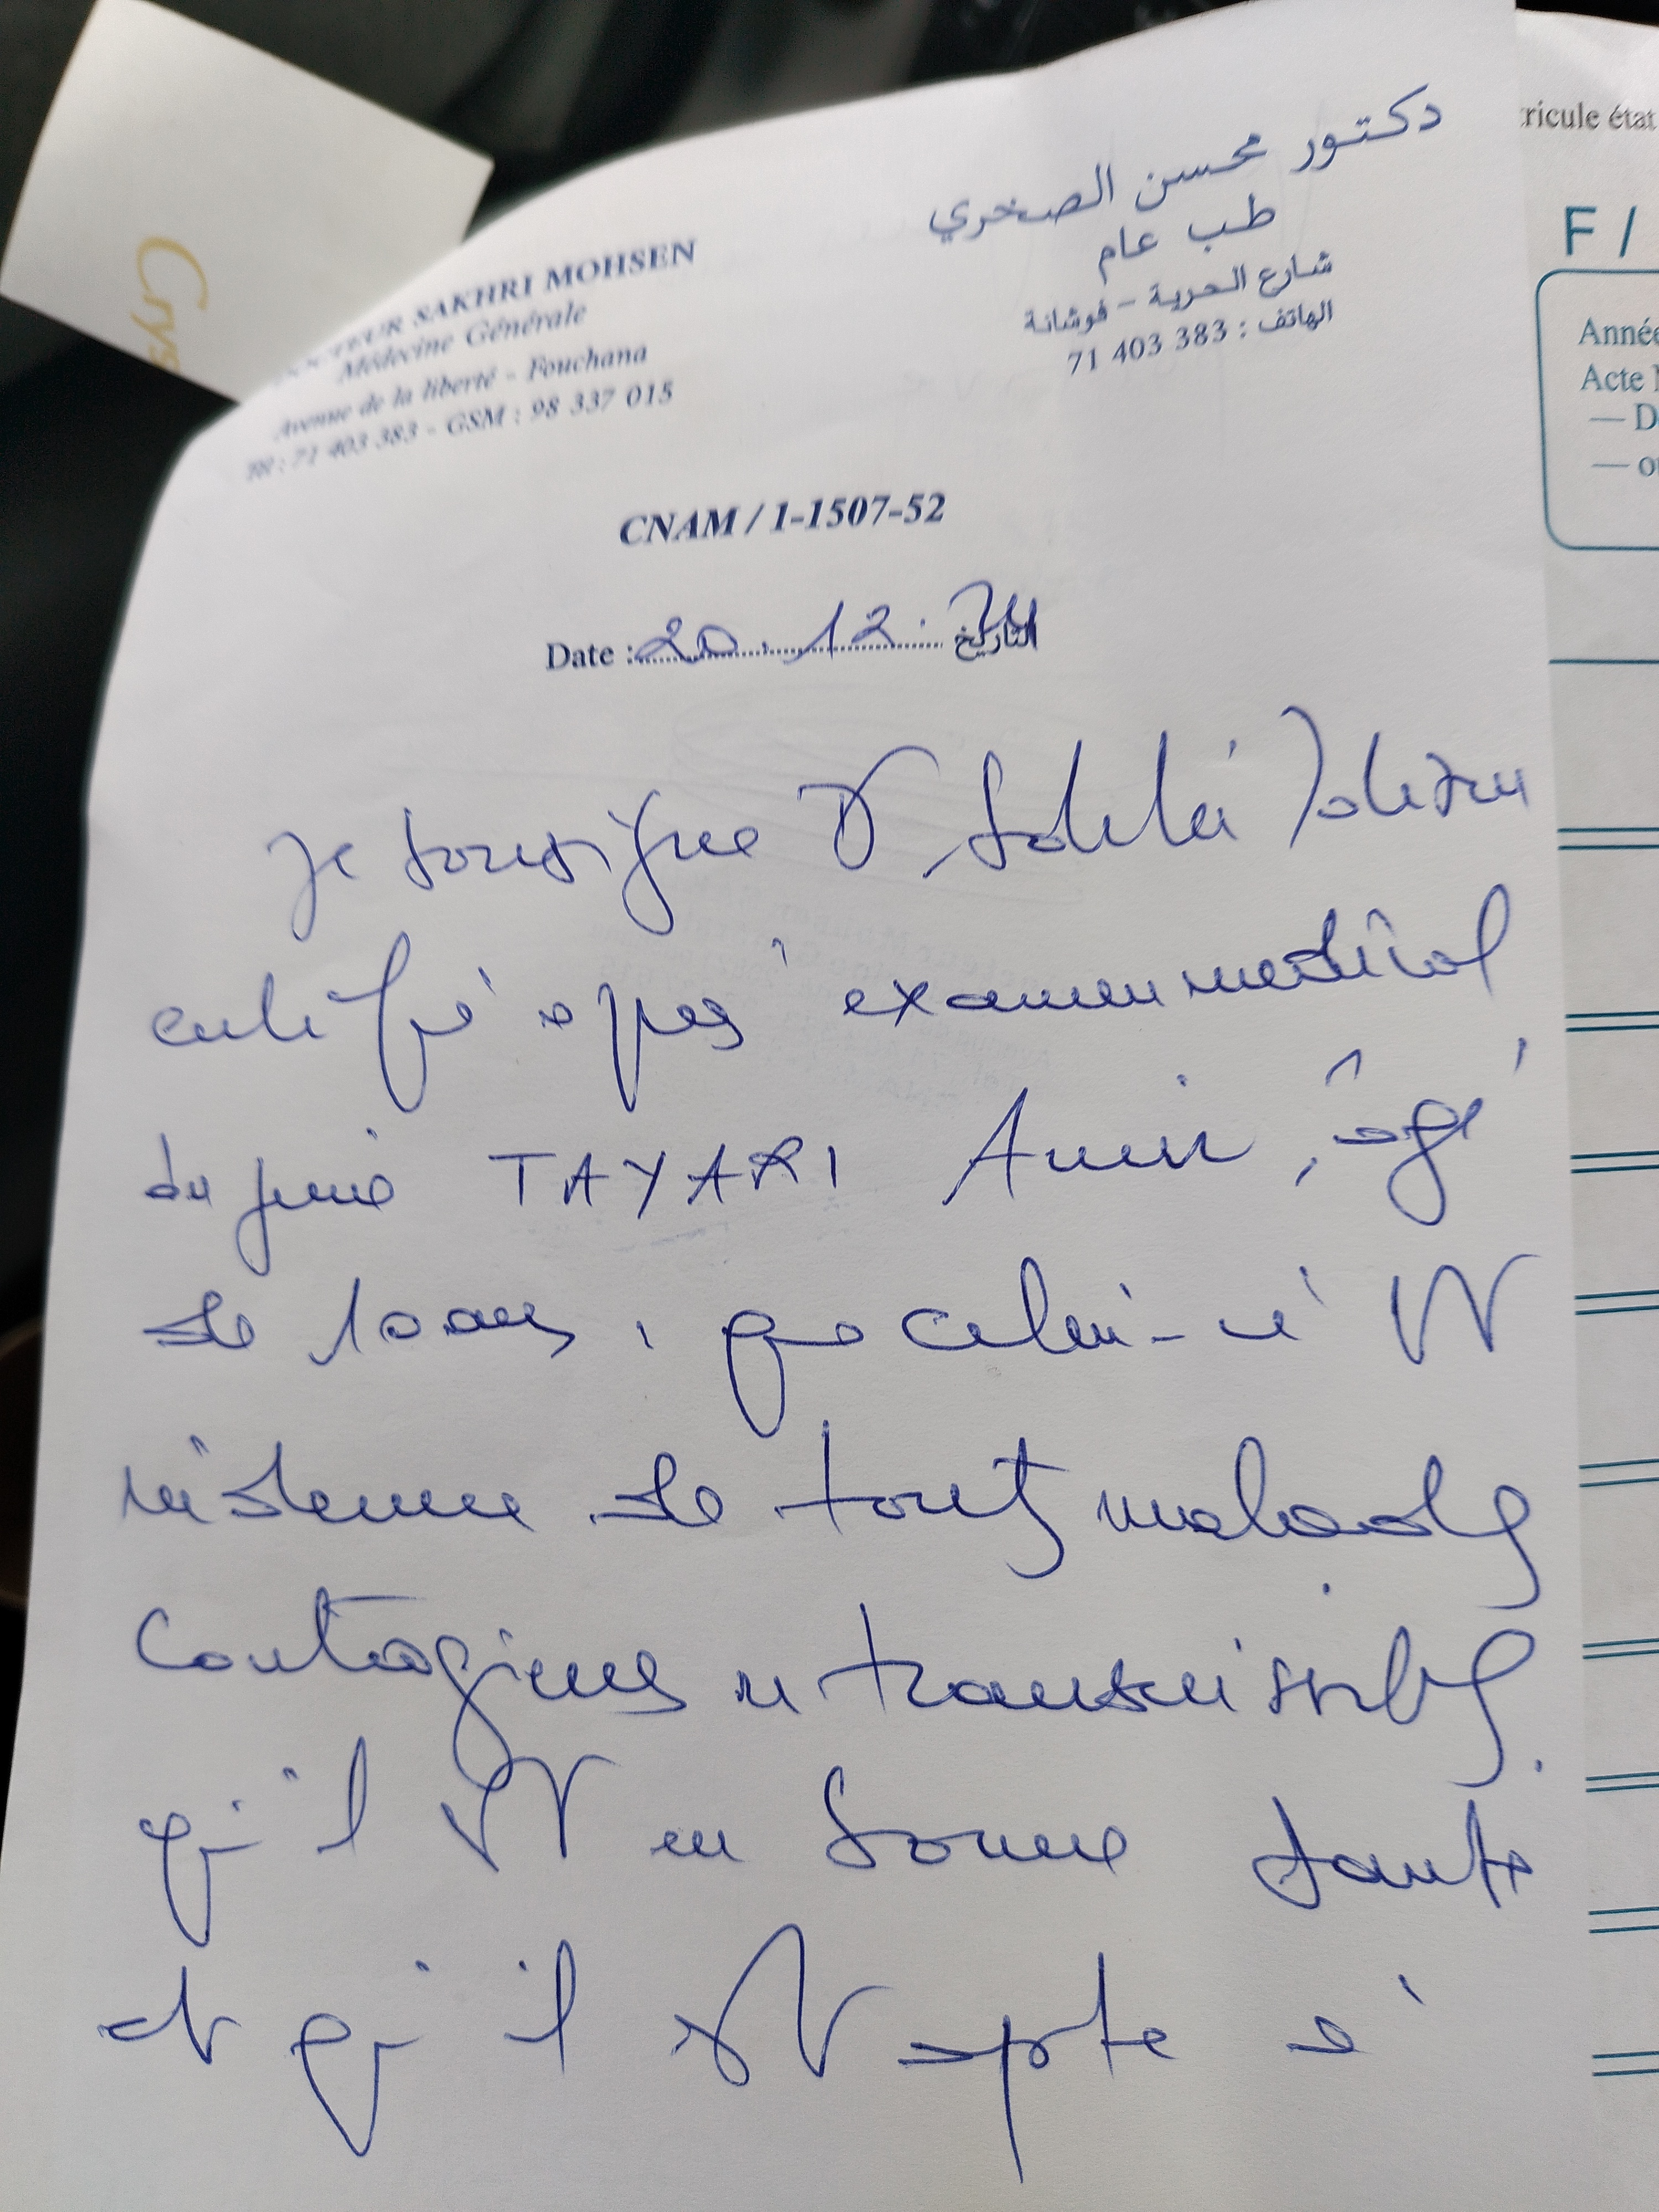 Crys
DOCTEUR SAKHRI MOHSEN
Médecine Générale
Avenue de la liberté - Fouchana
Tél : 71 403 383 - GSM : 98 337 015
دكتور محسن الصخري
طب عام
شارع الحرية - فوشانة
الهاتف : 383 403 71
CNAM / 1-1507-52
Date : 20.12.24 التاريخ
Je soussigné Dr Sakhri Mohsen
certifie après examen médical
du jeune TAYARI Amir, âgé
de 10 ans, que celui-ci est
indemne de toutes maladies
contagieuses et transmissibles,
qu'il est en bonne santé
et qu'il est apte à
ricule état
F /
Année
Acte
— D
— o